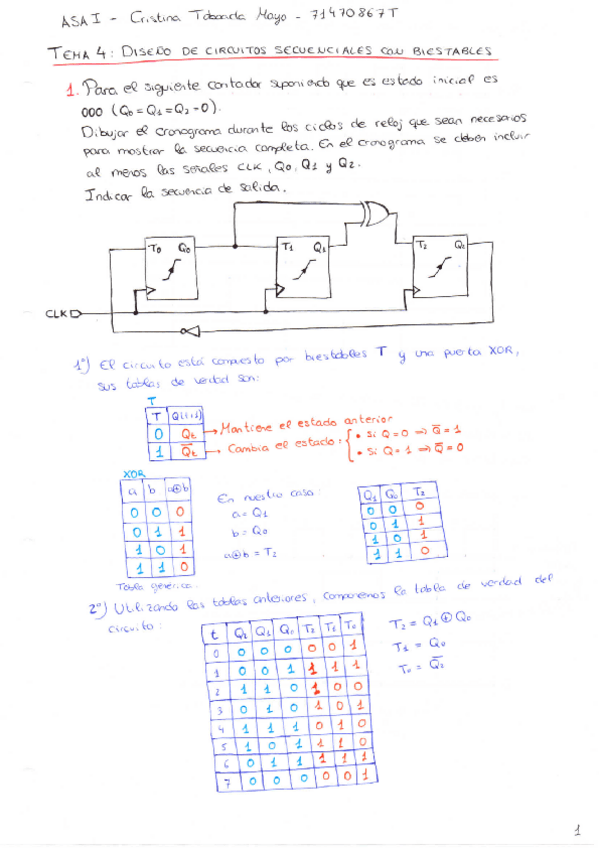 ASA I - Cristina Taboada Mayo - 71470867T
TEMA 4: DISEÑO DE CIRCUITOS SECUENCIALES CON BIESTABLES
1. Para el siguiente contador suponiendo que es estado inicial es
000 (Q0 = Q1 = Q2 = 0).
Dibujar el cronograma durante los ciclos de reloj que sean necesarios
para mostrar la secuencia completa. En el cronograma se deben incluir
al menos las señales CLK, Q0, Q1 y Q2.
Indicar la secuencia de salida.
T0 Q0 T1 Q1 T2 Q2
CLK
1º) El circuito está compuesto por biestables T y una puerta XOR,
sus tablas de verdad son:
T
T Q(t+1)
0 Qt → Mantiene el estado anterior
1 Q̅t → Cambia el estado: { • Si Q = 0 ⇒ Q̅ = 1
• Si Q = 1 ⇒ Q̅ = 0
XOR
a b a⊕b
0 0 0
0 1 1
1 0 1
1 1 0
Tabla genérica.
En nuestro caso:
a = Q1
b = Q0
a⊕b = T2
Q1 Q0 T2
0 0 0
0 1 1
1 0 1
1 1 0
2º) Utilizando las tablas anteriores, componemos la tabla de verdad del
circuito:
t Q2 Q1 Q0 T2 T1 T0
0 0 0 0 0 0 1
1 0 0 1 1 1 1
2 1 1 0 1 0 0
3 0 1 0 1 0 1
4 1 1 1 0 1 0
5 1 0 1 1 1 0
6 0 1 1 1 1 1
7 0 0 0 0 0 1
T2 = Q1 ⊕ Q0
T1 = Q0
T0 = Q̅2
1